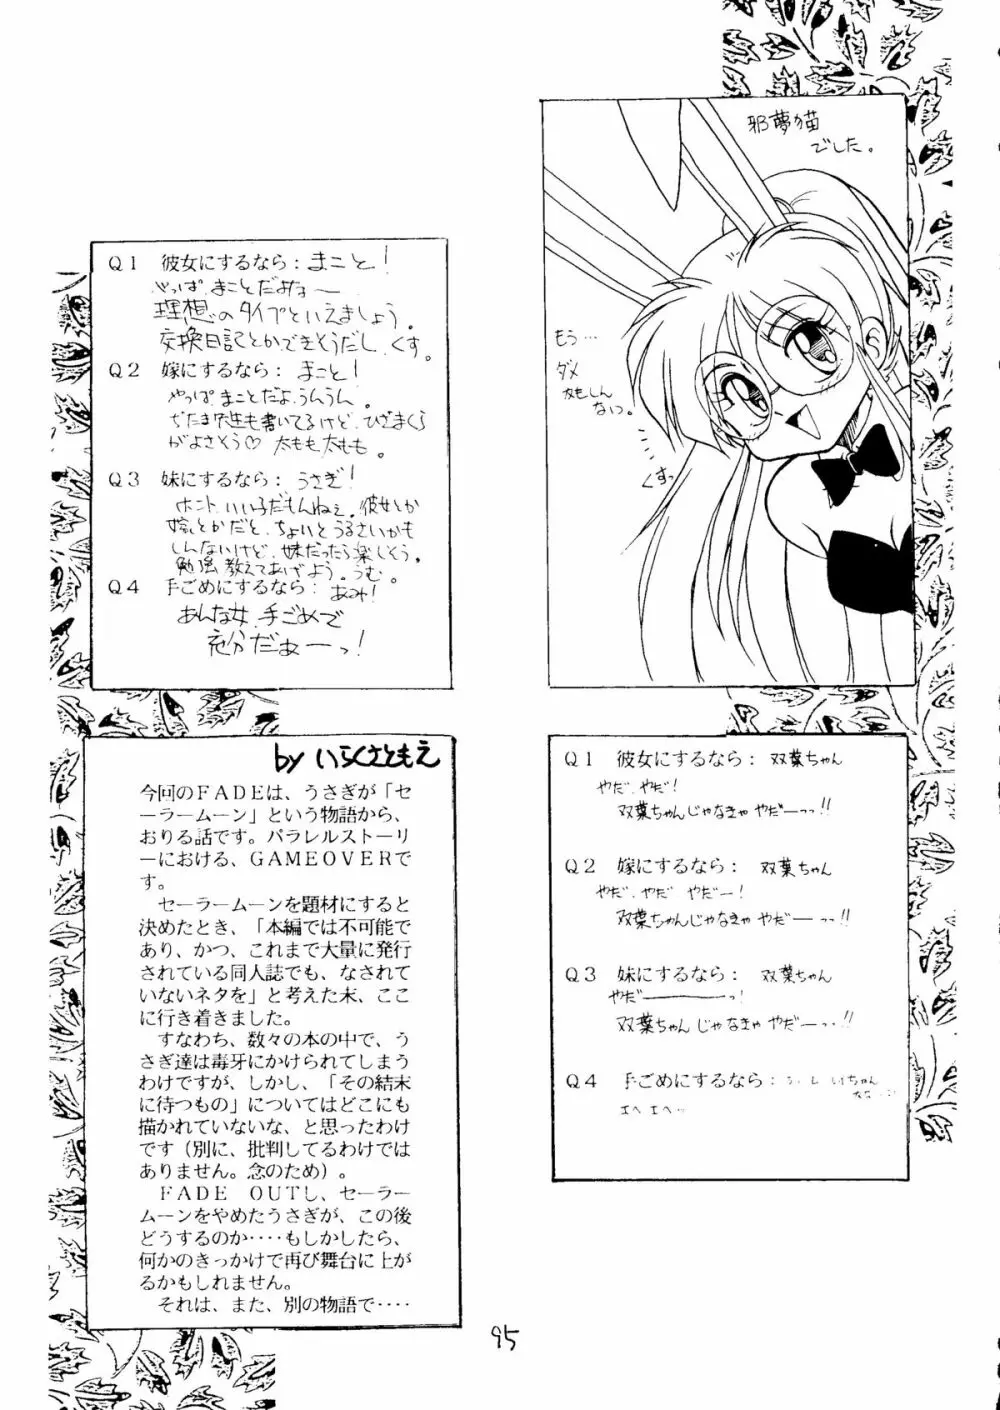 邪夢猫
でした。
もう…
ダメ
かもしんないっ。
くすっ
Q1 彼女にするなら：まこと！
やっぱ まことだよねー
理想のタイプといえましょう。
交換日記とかできそうだし、くす。
Q2 嫁にするなら：まこと！
やっぱ まことだよ、うんうん。
も書いてるけど、ひざまくら
がよさそう♡ 太もも太もも。
Q3 妹にするなら：うさぎ！
ホント いい子だもんねぇ。彼女とか
嫁とかだと、ちょいとうるさいかも
しんないけど、妹だったら楽しそう。
勉強 教えてあげよう。うむ。
Q4 手ごめにするなら：あみ！
あんな女、手ごめで
充分だぁーっ！
by いらくさともえ
今回のFADEは、うさぎが「セ
ーラームーン」という物語から、
おりる話です。パラレルストーリ
ーにおける、GAMEOVERで
す。
セーラームーンを題材にすると
決めたとき、「本編では不可能で
あり、かつ、これまで大量に発行
されている同人誌でも、なされて
いないネタを」と考えた末、ここ
に行き着きました。
すなわち、数々の本の中で、う
さぎ達は毒牙にかけられてしまう
わけですが、しかし、「その結末
に待つもの」についてはどこにも
描かれていないな、と思ったわけ
です（別に、批判してるわけでは
ありません。念のため）。
FADE OUTし、セーラー
ムーンをやめたうさぎが、この後
どうするのか‥‥もしかしたら、
何かのきっかけで再び舞台に上が
るかもしれません。
それは、また、別の物語で‥‥
Q1 彼女にするなら：双葉ちゃん
やだ、やだ！
双葉ちゃんじゃなきゃ やだーっっ!!
Q2 嫁にするなら：双葉ちゃん
やだ、やだ やだー！
双葉ちゃんじゃなきゃ やだーっっ!!
Q3 妹にするなら：双葉ちゃん
やだーっ！
双葉ちゃんじゃなきゃ やだーっ!!
Q4 手ごめにするなら：
エヘ エヘ…
95